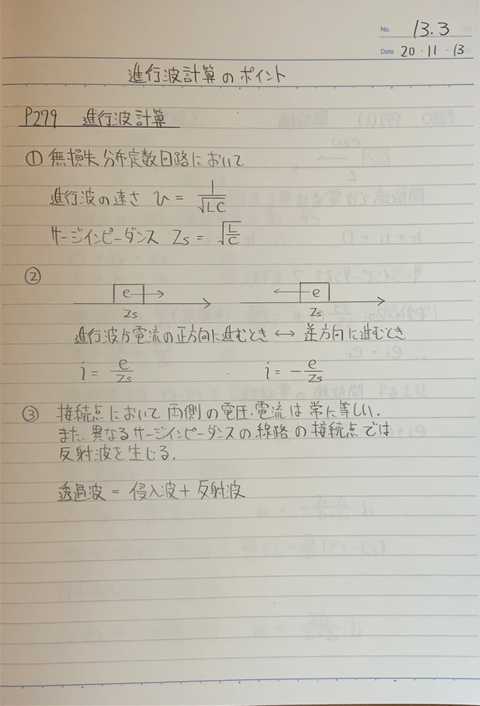 No. 13.3
Date 20・11・13
進行波計算のポイント
P279 進行波計算
① 無損失分布定数回路において
進行波の速さ υ = 1/√LC
サージインピーダンス Zs = √L/C
②
e → ← e
Zs Zs
進行波が電流の正方向に進むとき ↔ 差方向に進むとき
i = e/Zs i = -e/Zs
③ 接続点において両側の電圧・電流は常に等しい.
また.異なるサージインピーダンスの線路の接続点では
反射波を生じる.
透過波 = 侵入波 + 反射波